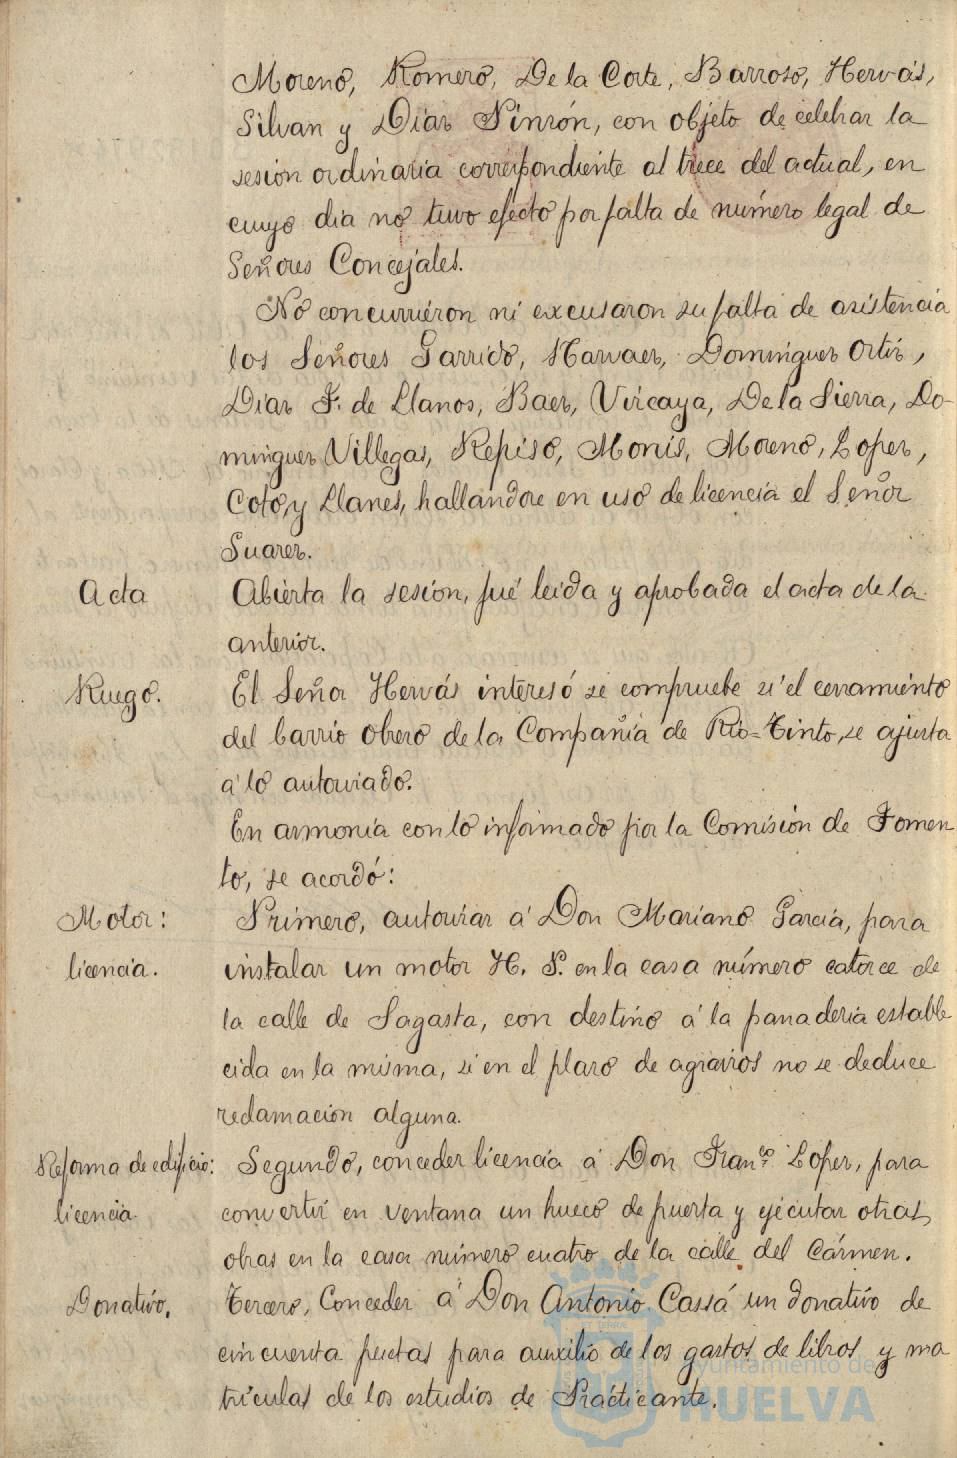 Moreno, Romero, De la Corte, Barroso, Hervás,
Silvan y Diaz Pinzón, con objeto de celebrar la
sesion ordinaria correspondiente al trece del actual, en
cuyo dia no tuvo efecto por falta de número legal de
Señores Concejales.
No concurrieron ni excusaron su falta de asistencia
los Señores Garrido, Narvaez, Dominguez Ortiz,
Diaz F. de Llanos, Baez, Vizcaya, De la Sierra, Do-
minguez Villegas, Repiso, Monis, Moreno, Lopez,
Coto, y Llanes, hallandose en uso de licencia el Señor
Suarez.
Acta Abierta la sesion, fué leida y aprobada el acta de la
anterior.
Ruego. El Señor Hervás interesó se compruebe si el cerramiento
del barrio obrero de la Compañia de Rio=Tinto, se ajusta
á lo autorizado.
En armonia con lo informado por la Comision de Fomen
to, se acordó:
Motor: Primero, autorizar á Don Mariano Garcia, para
licencia. instalar un motor H. P. en la casa número catorce de
la calle de Sagasta, con destino á la panaderia estable
cida en la misma, si en el plazo de agravios no se deduce
reclamacion alguna.
Reforma de edificio: Segundo, conceder licencia á Don Franco. Lopez, para
licencia. convertir en ventana un hueco de puerta y ejecutar otras
obras en la casa número cuatro de la calle del Cármen.
Donativo. Tercero, Conceder á Don Antonio Cassá un donativo de
cincuenta pesetas para auxilio de los gastos de libros y ma
triculas de los estudios de Practicante.
ayuntamiento de
HUELVA